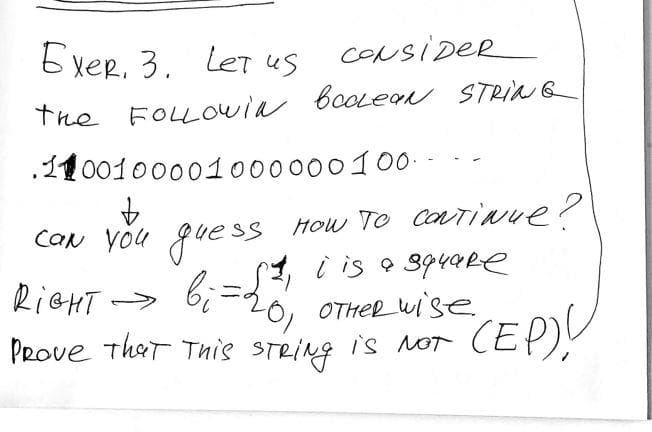 EXER. 3. LET US CONSIDER
the FOLLOWIN BOOLEAN STRING
.1100100001000000100.....
↓
CAN YOU guess HOW TO CONTINUE?
RIGHT → b_i = { 1, i is a square
0, OTHERWISE.
PROVE THAT THIS STRING IS NOT (EP)!